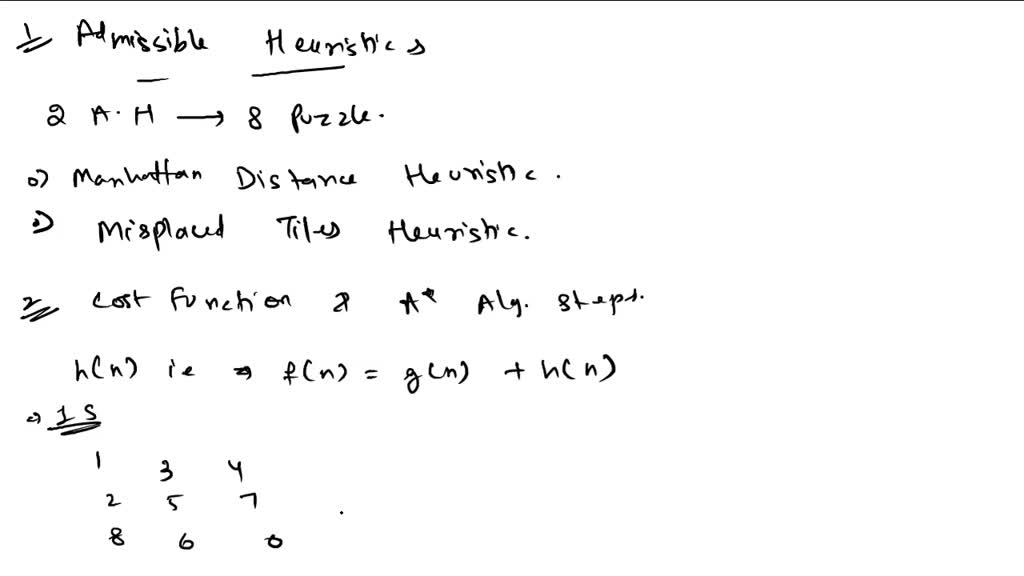 1 Admissible Heuristics
2 A.H → 8 Puzzle.
Manhattan Distance Heuristic.
Misplaced Tiles Heuristic.
2 Cost Function & A* Alg. Steps.
h(n) ie → f(n) = g(n) + h(n)
→ IS
1 3 4
2 5 7
8 6 0